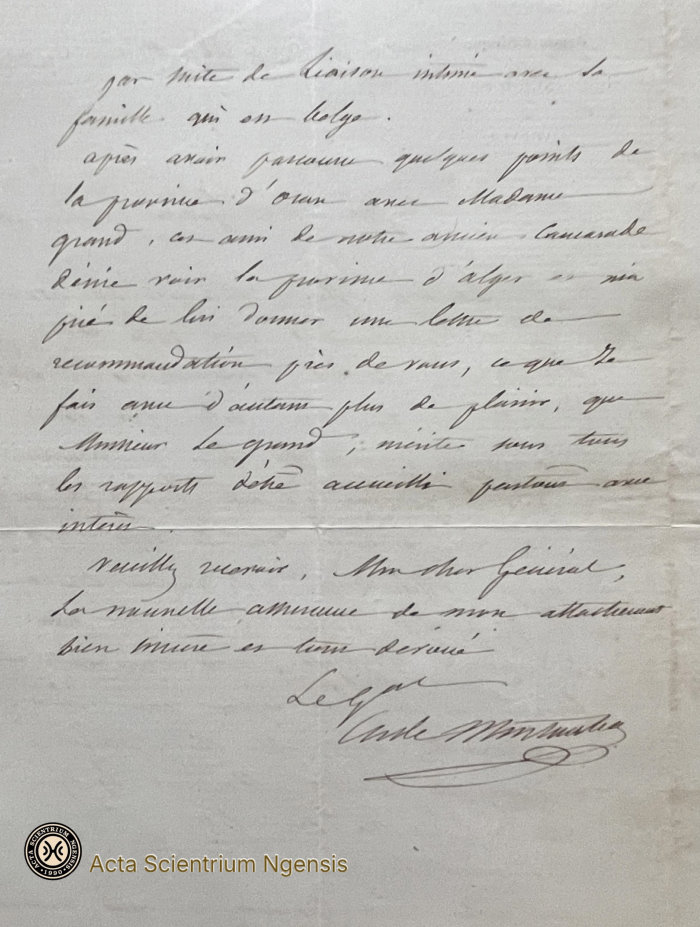 par suite de liaison intime avec sa
famille qui est belge.
après avoir parcouru quelques points de
la province d'Oran avec Madame
grand, cet ami de notre ancien Camarade
désire voir la province d'alger et m'a
prié de lui donner une lettre de
recommandation près de vous, ce que Je
fais avec d'autant plus de plaisir, que
Monsieur Le grand, mérite sous tous
les rapports d'être accueilli partout avec
intérêt.
Veuillez recevoir, Mon cher Général,
la nouvelle assurance de mon attachement
bien sincère et tout dévoué
Le Gal
de Montauban
ACTA SCIENTRIUM NGENSIS
• 1990 •
Acta Scientrium Ngensis